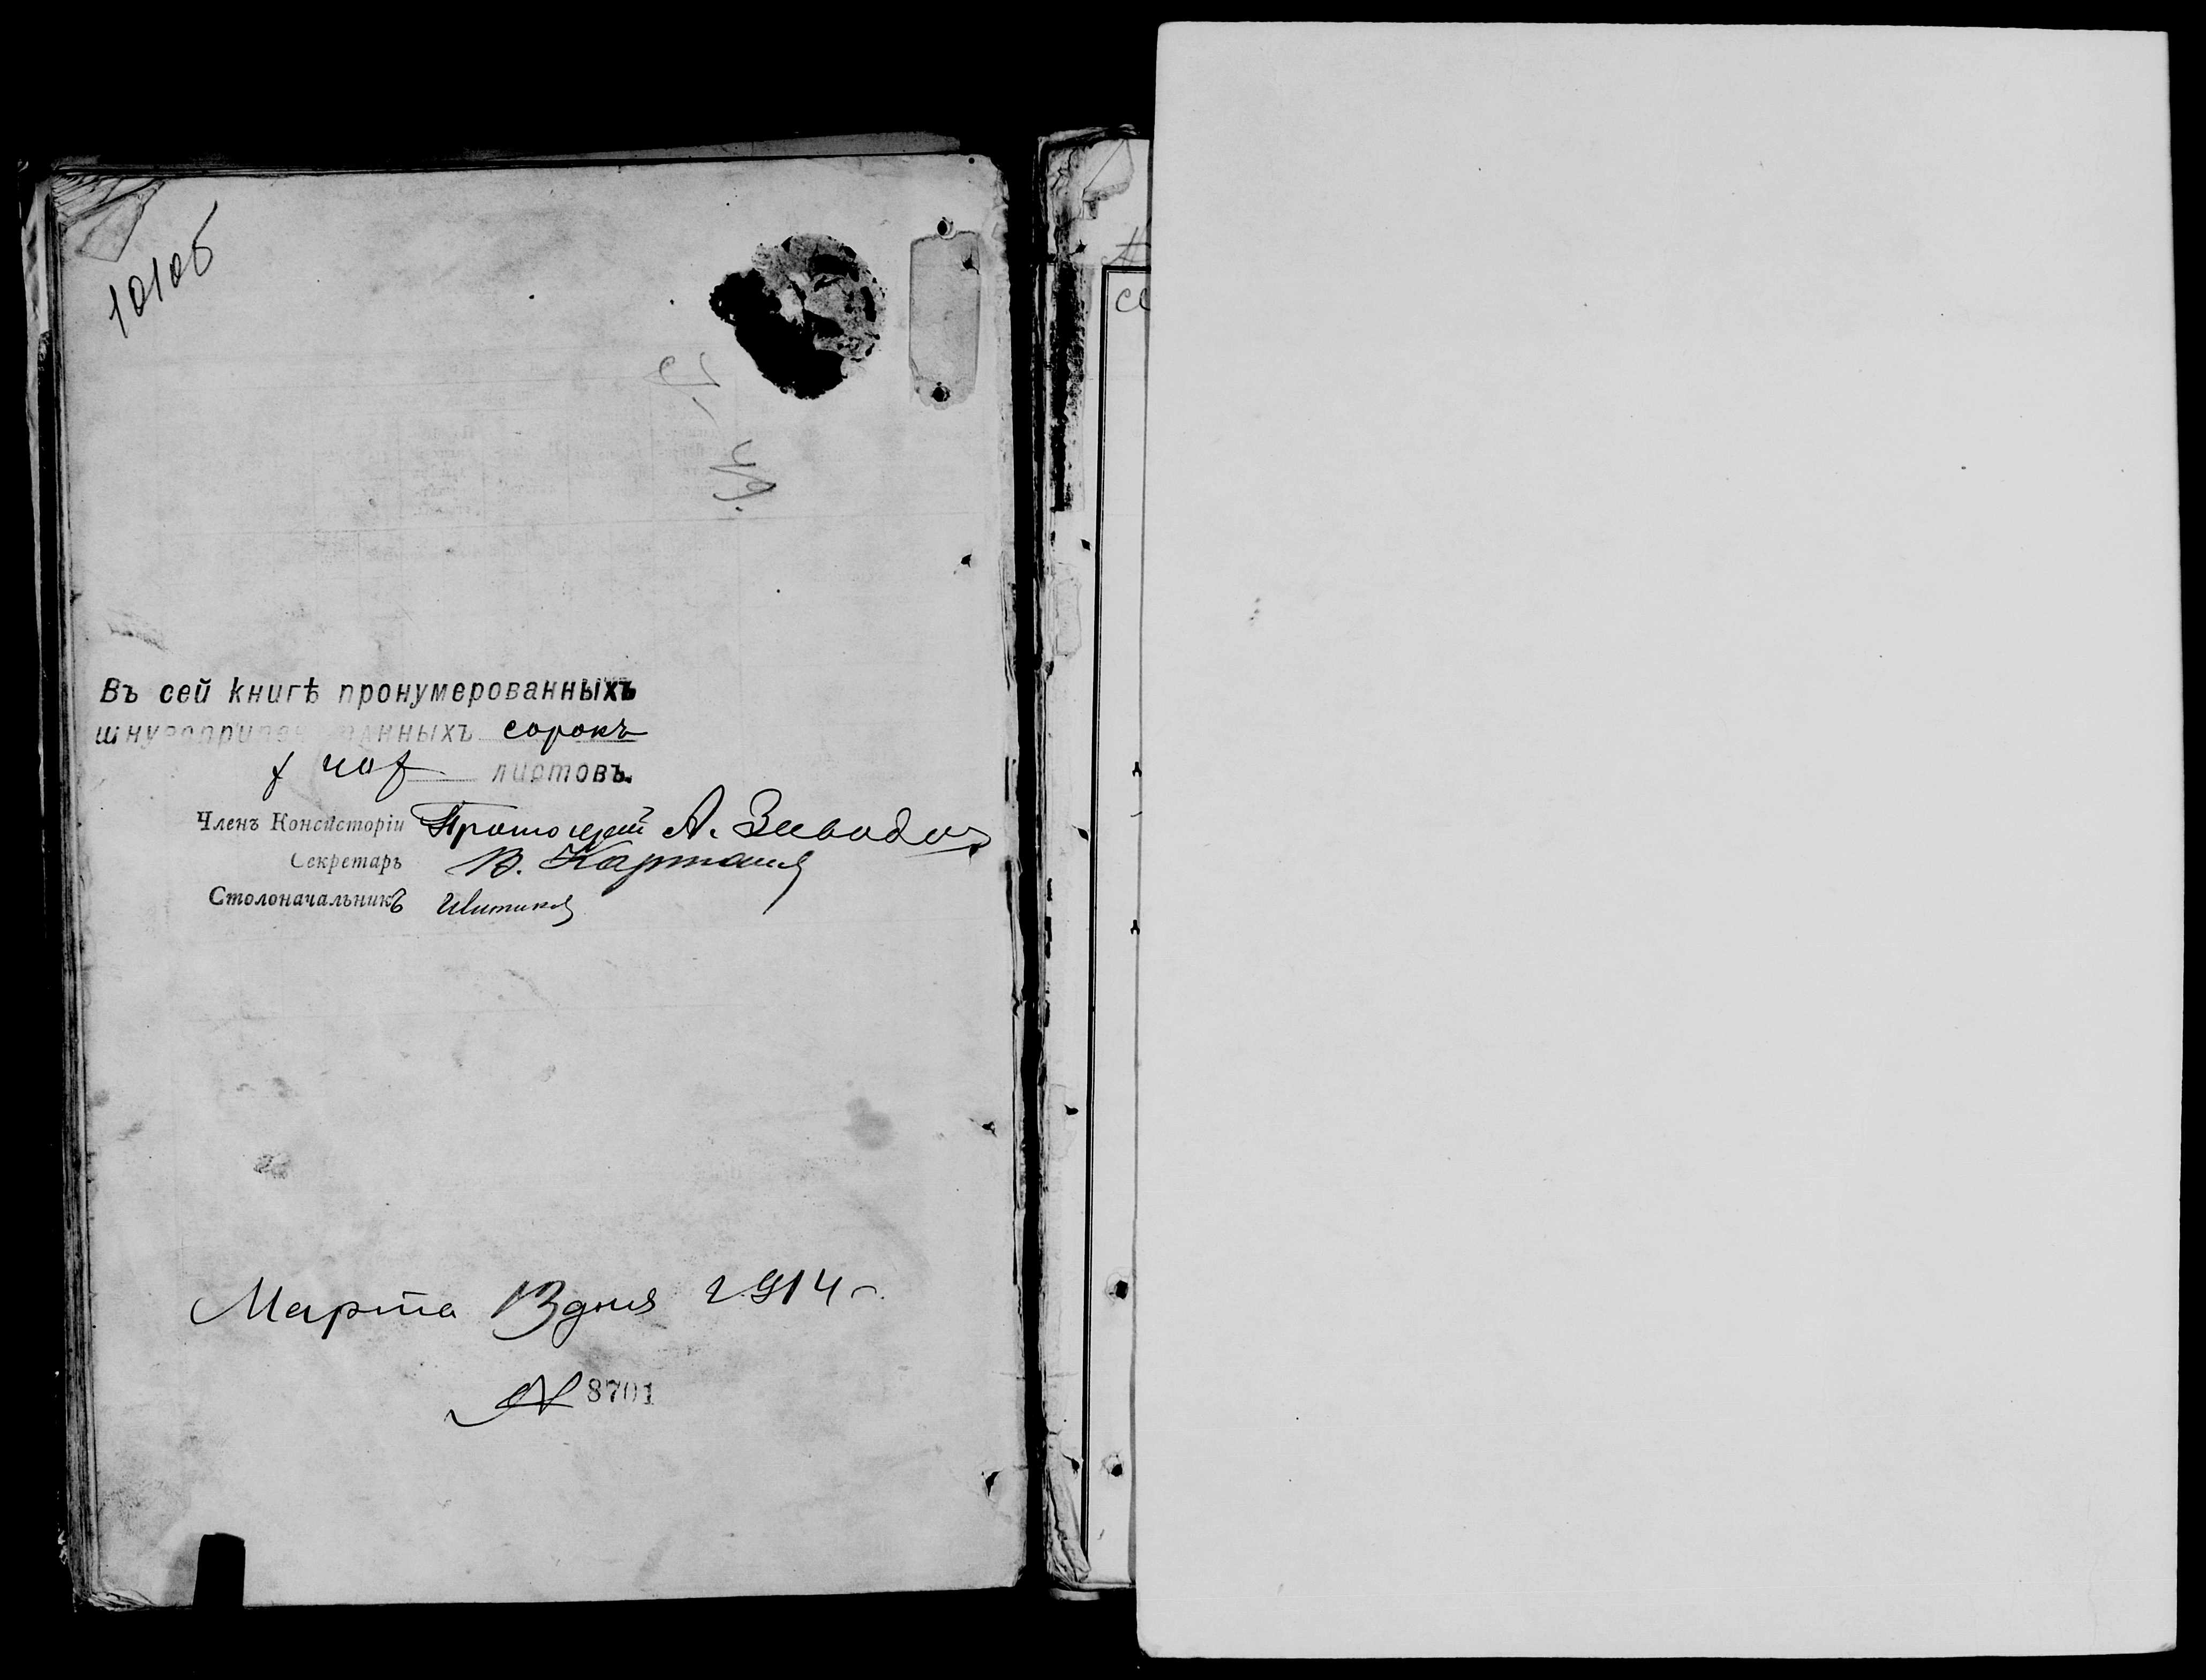 101об
Въ сей книгѣ пронумерованныхъ
шнуроприпечатанныхъ сорокъ
листовъ.
Членъ Консисторіи Протоіерей А.
Секретарь В.
Столоначальникъ
Марта 13 дня 1914 г.
№ 8701